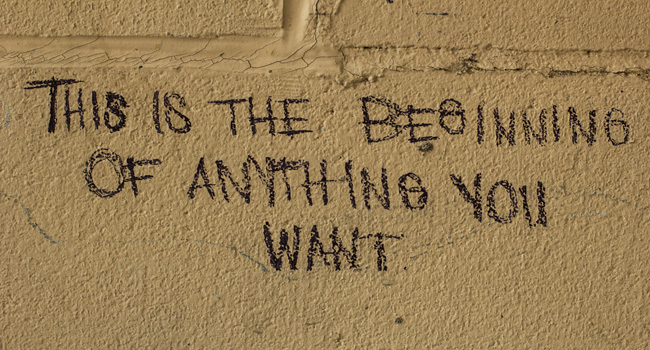 THIS IS THE BEGINNING
OF ANYTHING YOU
WANT.